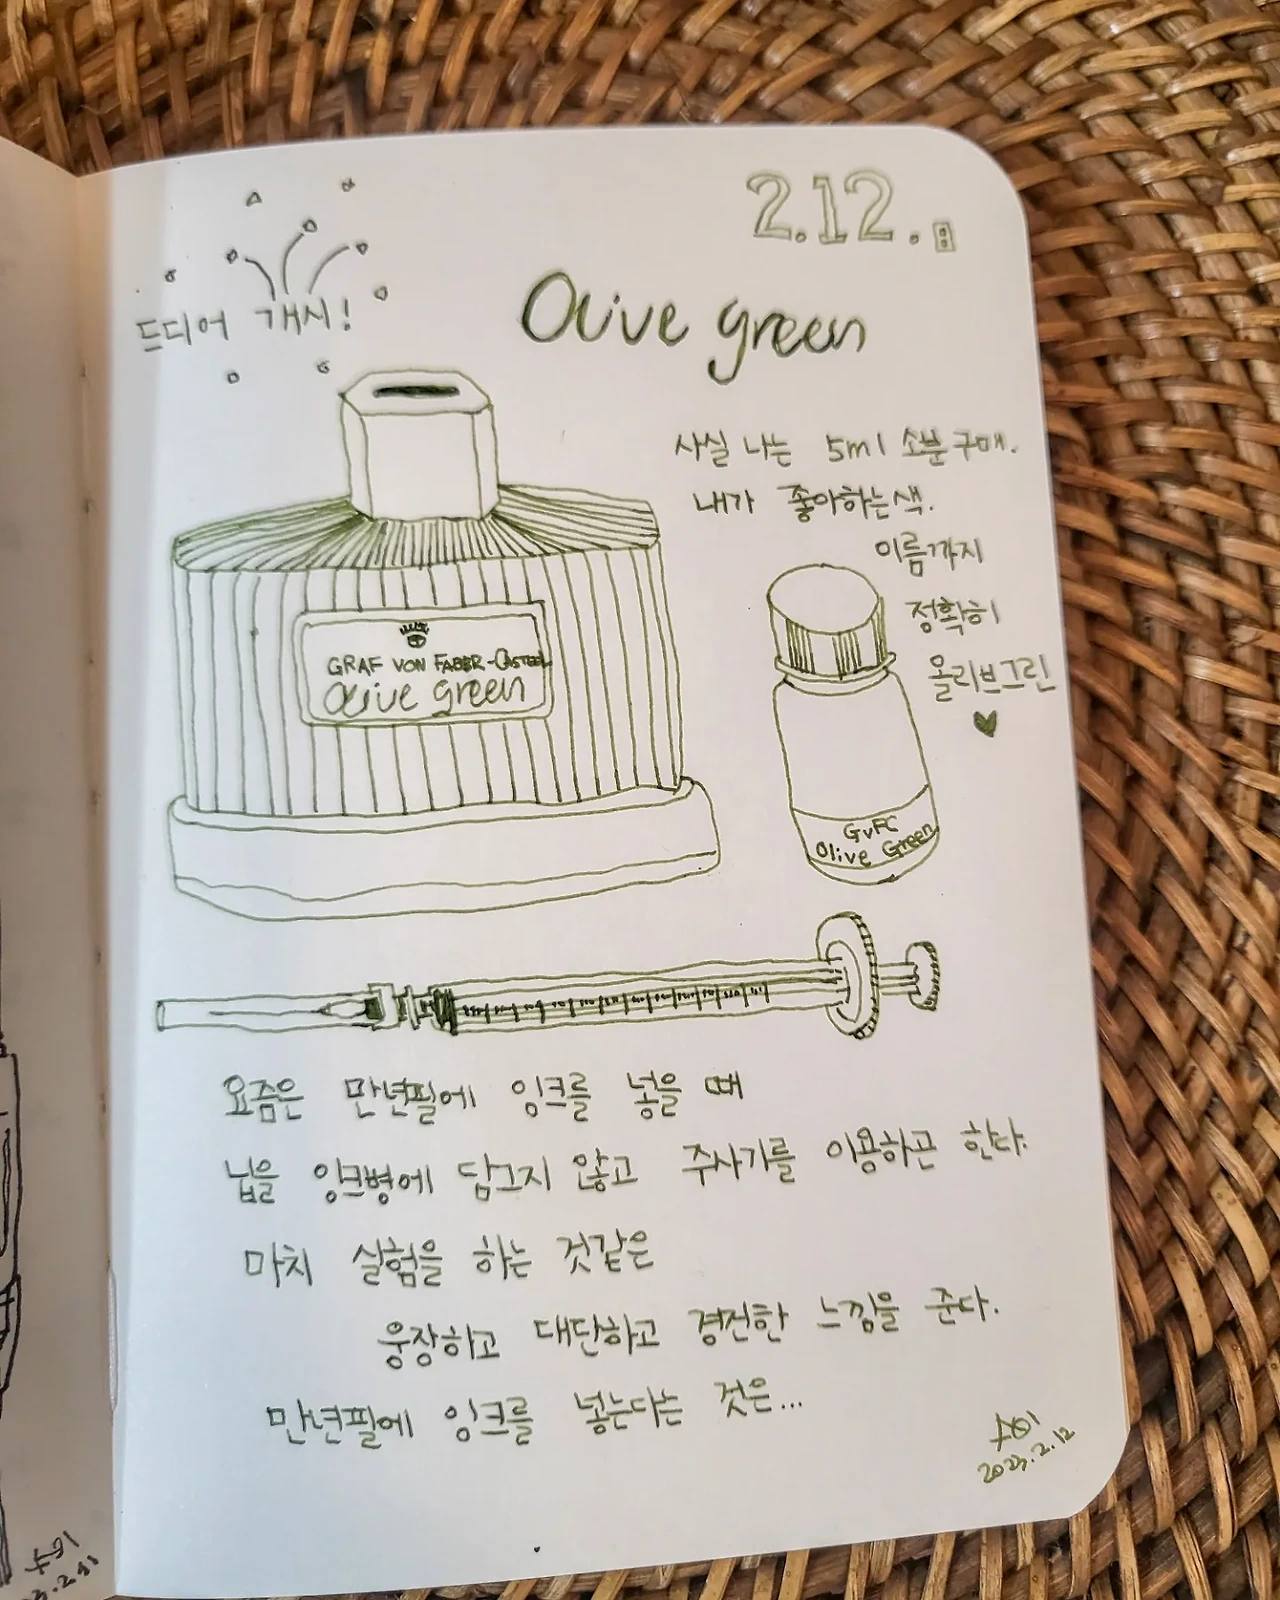 2.12.
드디어 개시!
Olive green
사실 나는 5ml 소분구매.
내가 좋아하는색.
이름까지
정확히
올리브그린
GRAF VON FABER-CASTELL
olive green
GvFC
Olive Green
요즘은 만년필에 잉크를 넣을 때
닙을 잉크병에 담그지 않고 주사기를 이용하곤 한다.
마치 실험을 하는 것같은
웅장하고 대단하고 경건한 느낌을 준다.
만년필에 잉크를 넣는다는 것은...
2023.2.12